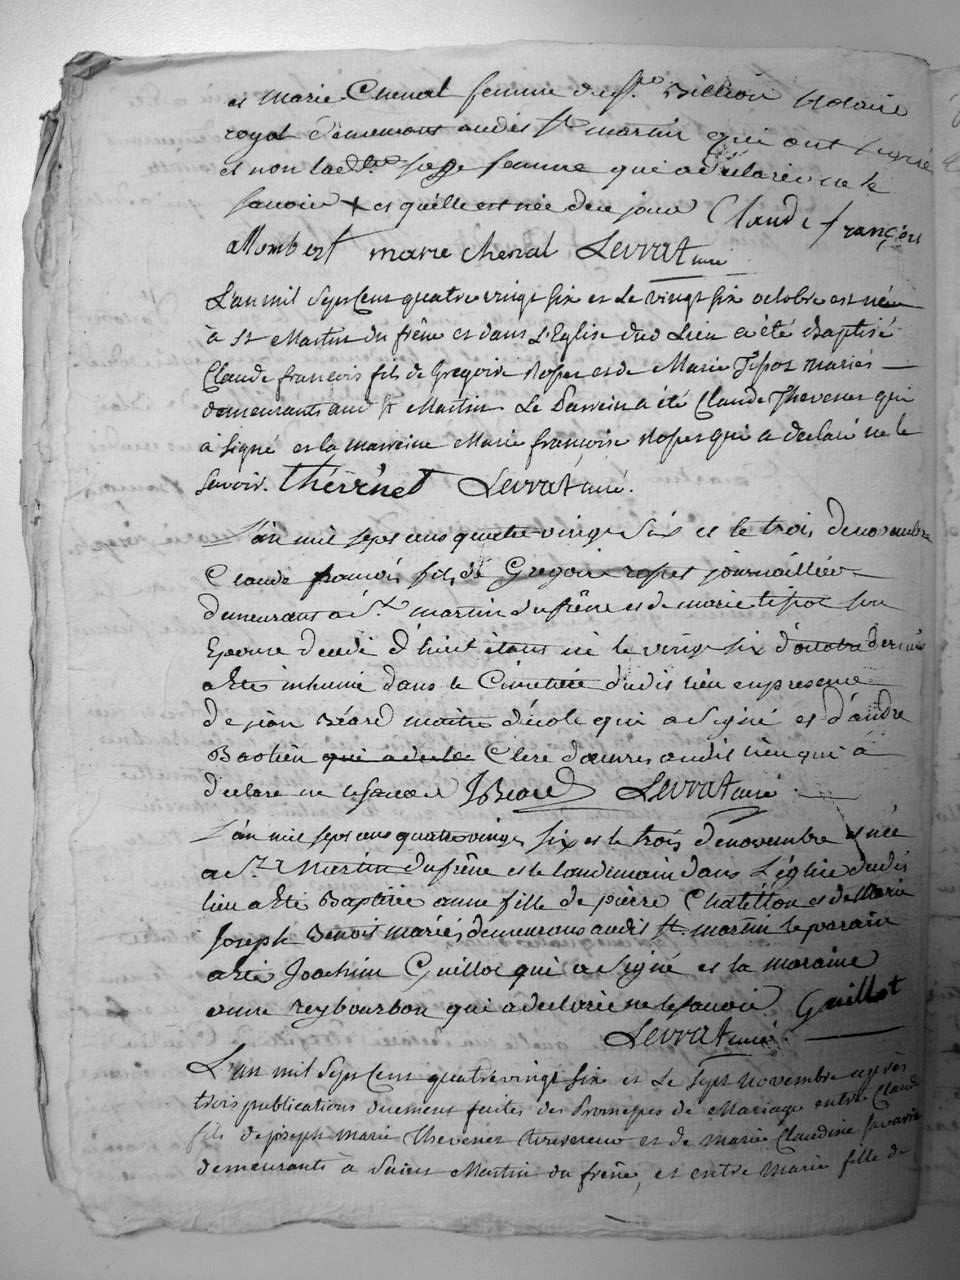 et marie Chenal femme de Sr. Billion Notaire
royal demeurant audit St martin qui ont signé
et non ladte sage femme qui a declarée ne le
savoir + et qu'elle est née du jour Claude françois
allombert marie chenal Levrat curé
L'an mil Sept Cent quatre vingt Six et Le vingt Six octobre est née
à St Martin du frêne et dans L'Eglise dud Lieu a été Baptisé
Claude françois fils de Gregoire Rosset et de Marie Tissot mariés
demeurants aud St Martin Le Parrein a été Claude Thevenet qui
à Signé et la marreine Marie françoise Rosset qui a declaré ne le
Savoir. Thévenet Levrat curé.
L'an mil sept cens quatre vingt Six et le trois de novembre
Claude francois fils de Gregoire rosset journaillier
demeurans a St martin du frêne et de marie tissot son
Epouse decedé d'huit étant né le vingt six d'octobre dernier
a Eté inhumé dans le Cimetiere dudit lieu en presence
de jean Béard maitre d'école qui a Signé et d'andre
Bastien qui a declare Clerc d'œuvres audit lieu qui à
declare ne le savoir JBeard Levrat curé
L'an mil sept cens quatre vingt six et le trois de novembre est née
a St Martin du frêne et le landemain dans L'église dudit
lieu a Eté Baptisée anne fille de pierre Chatillon et de Marie
Joseph Benoit mariés demeurans audit St martin le parain
a Eté Joachim Guillot qui a Signé et la maraine
anne reybourbon qui a declarée ne le savoir Guillot
Levrat curé
L'an mil Sept Cent quatre vingt Six et Le Sept Novembre après
trois publications duement faites des Promesses de Mariage entre Claude
fils de joseph marie Thevenet et de marie Claudine
demeurants à Saint Martin du frêne, et entre Marie fille de